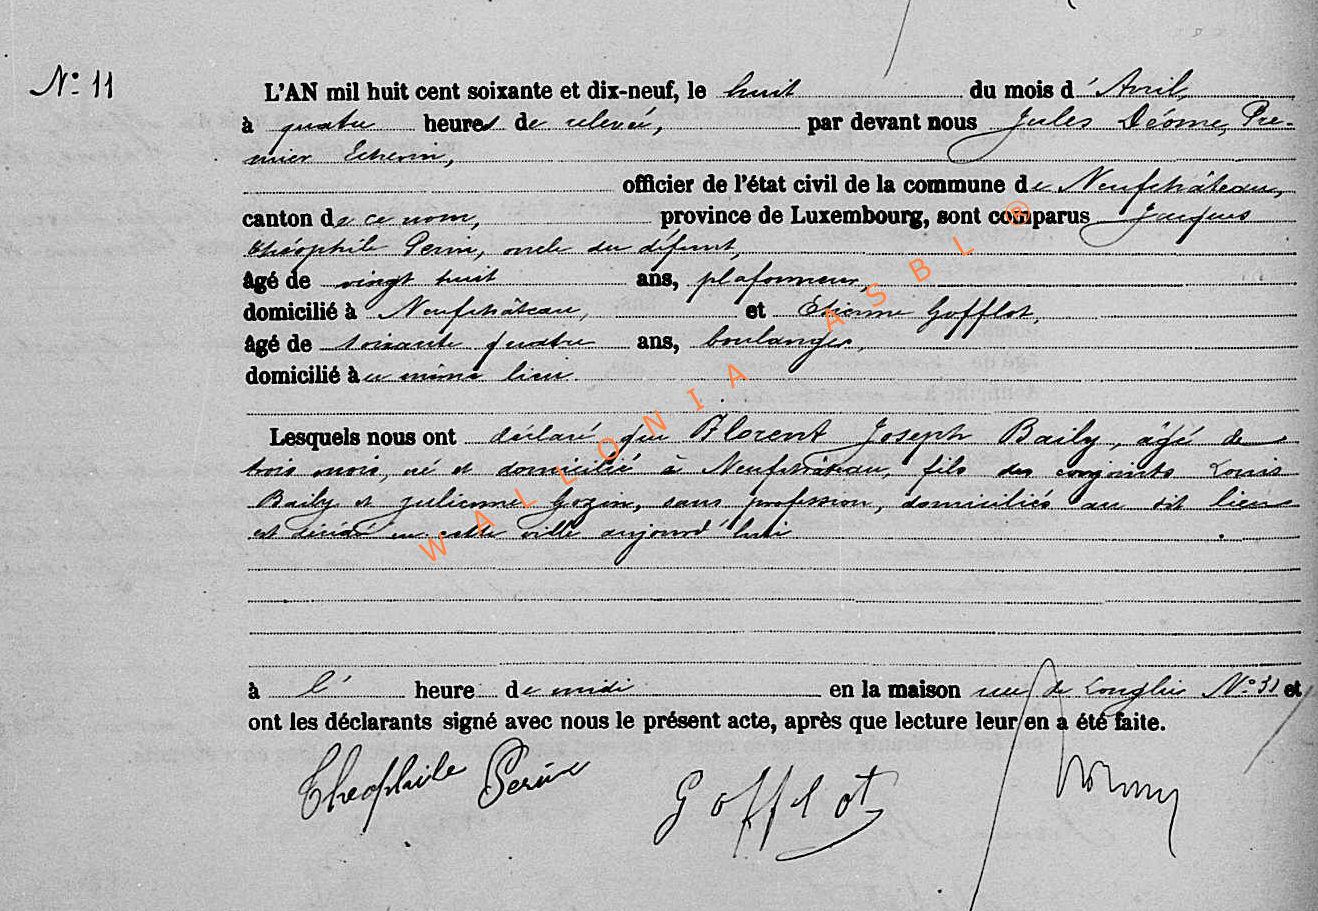 N° 11
L'AN mil huit cent soixante et dix-neuf, le huit du mois d'Avril,
à quatre heures de relevée, par devant nous Jules Déome, Pre-
mier Echevin,
officier de l'état civil de la commune de Neufchâteau,
canton de ce nom, province de Luxembourg, sont comparus Jacques
Théophile Perin, oncle du défunt,
âgé de vingt huit ans, plafonneur,
domicilié à Neufchâteau, et Etienne Gofflot,
âgé de soixante quatre ans, boulanger,
domicilié au même lieu
Lesquels nous ont déclaré que Florent Joseph Baily, âgé de
trois mois, né et domicilié à Neufchâteau, fils des conjoints Louis
Baily et Julienne Gozin, sans profession, domiciliés au dit lieu
est décédé en cette ville aujourd'hui
à l' heure de midi en la maison rue de Longlier N° 31 et
ont les déclarants signé avec nous le présent acte, après que lecture leur en a été faite.
Theophile Perin
Gofflot
WALLONIA ASBL ®